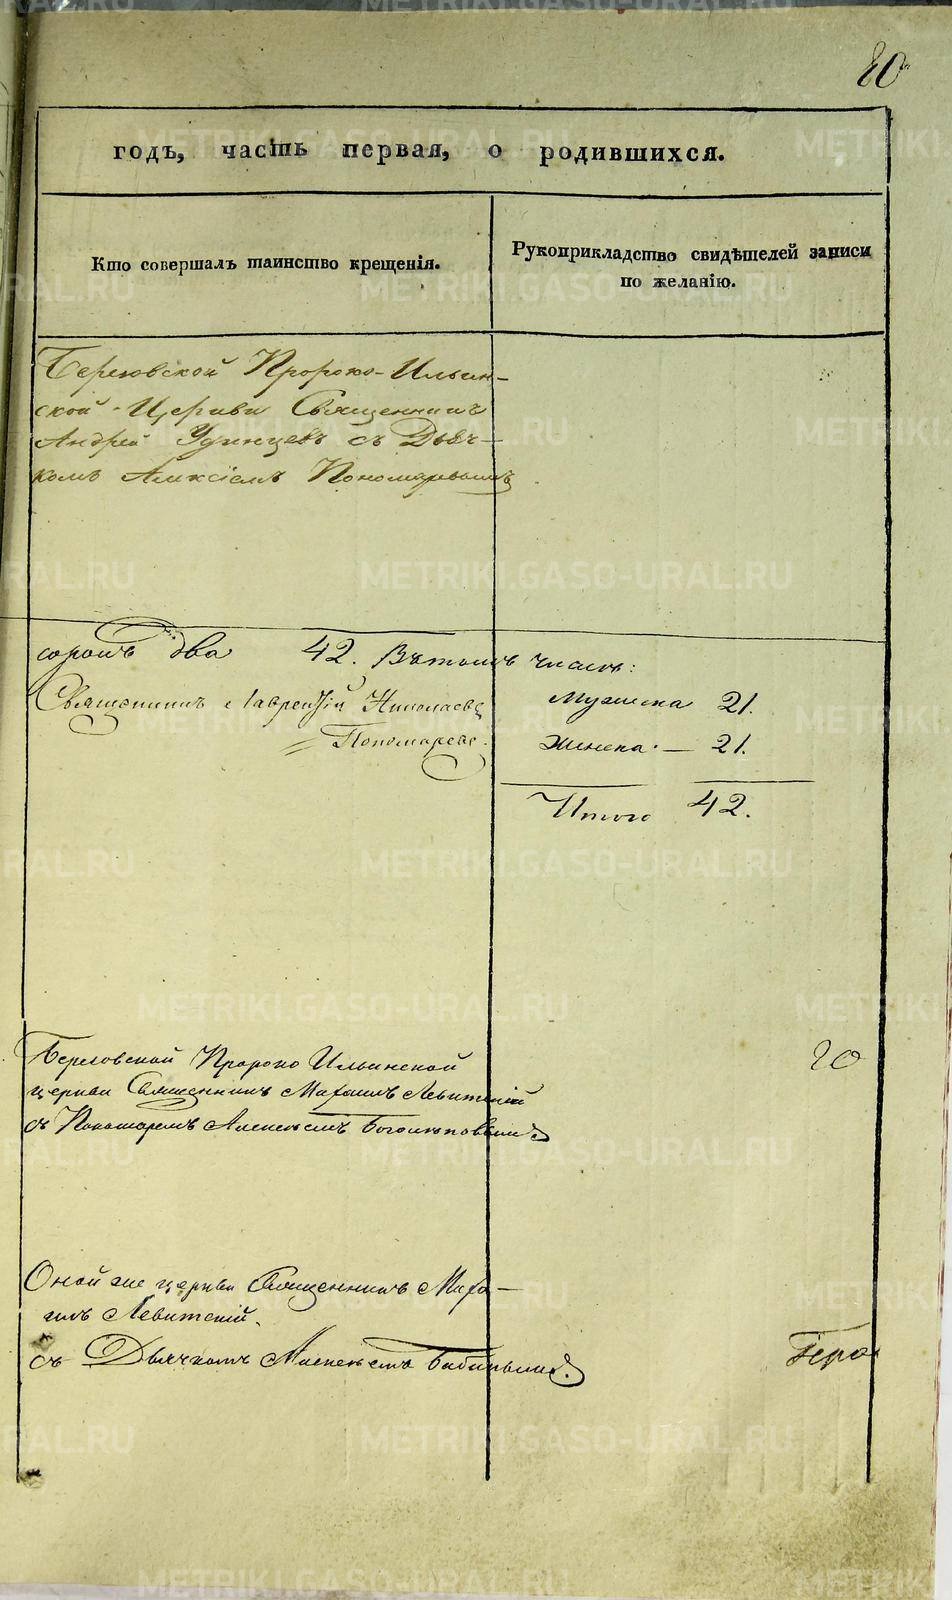 20
годъ, часть первая, о родившихся.
Кто совершалъ таинство крещенія.
Рукоприкладство свидѣтелей записи
по желанію.
Березовской Пророко-Ильин-
ской Церкви Священникъ
Андрей Удинцевъ съ Дьяч-
комъ Алексіемъ Пономаревымъ
сорокъ два 42. Въ томъ числѣ:
Священникъ Лаврентій Николаевъ
Мужеска 21.
Пономаревъ.
Женска — 21.
Итого 42.
Березовской Пророко Ильинской
20
церкви Священникъ Михаилъ Левитскій
съ Пономаремъ Алексѣемъ
Оной же церкви Священникъ Миха-
илъ Левитскій.
съ Дьячкомъ
METRIKI.GASO-URAL.RU